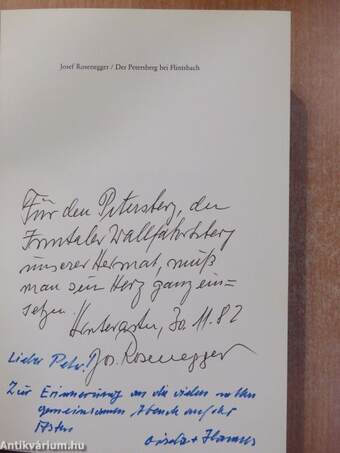 Josef Rosenegger / Der Petersberg bei Flintsbach
Für den Petersberg, den
Inntaler Wallfahrtsberg
unserer Heimat, muß
man sein Herz ganz ein=
setzen.
11.82
Jos. Rosenegger
Lieber Peter!
Zur Erinnerung an die vielen netten
gemeinsamen Abende auf der
Asten
Gisela + Hannes
Antikvárium.hu